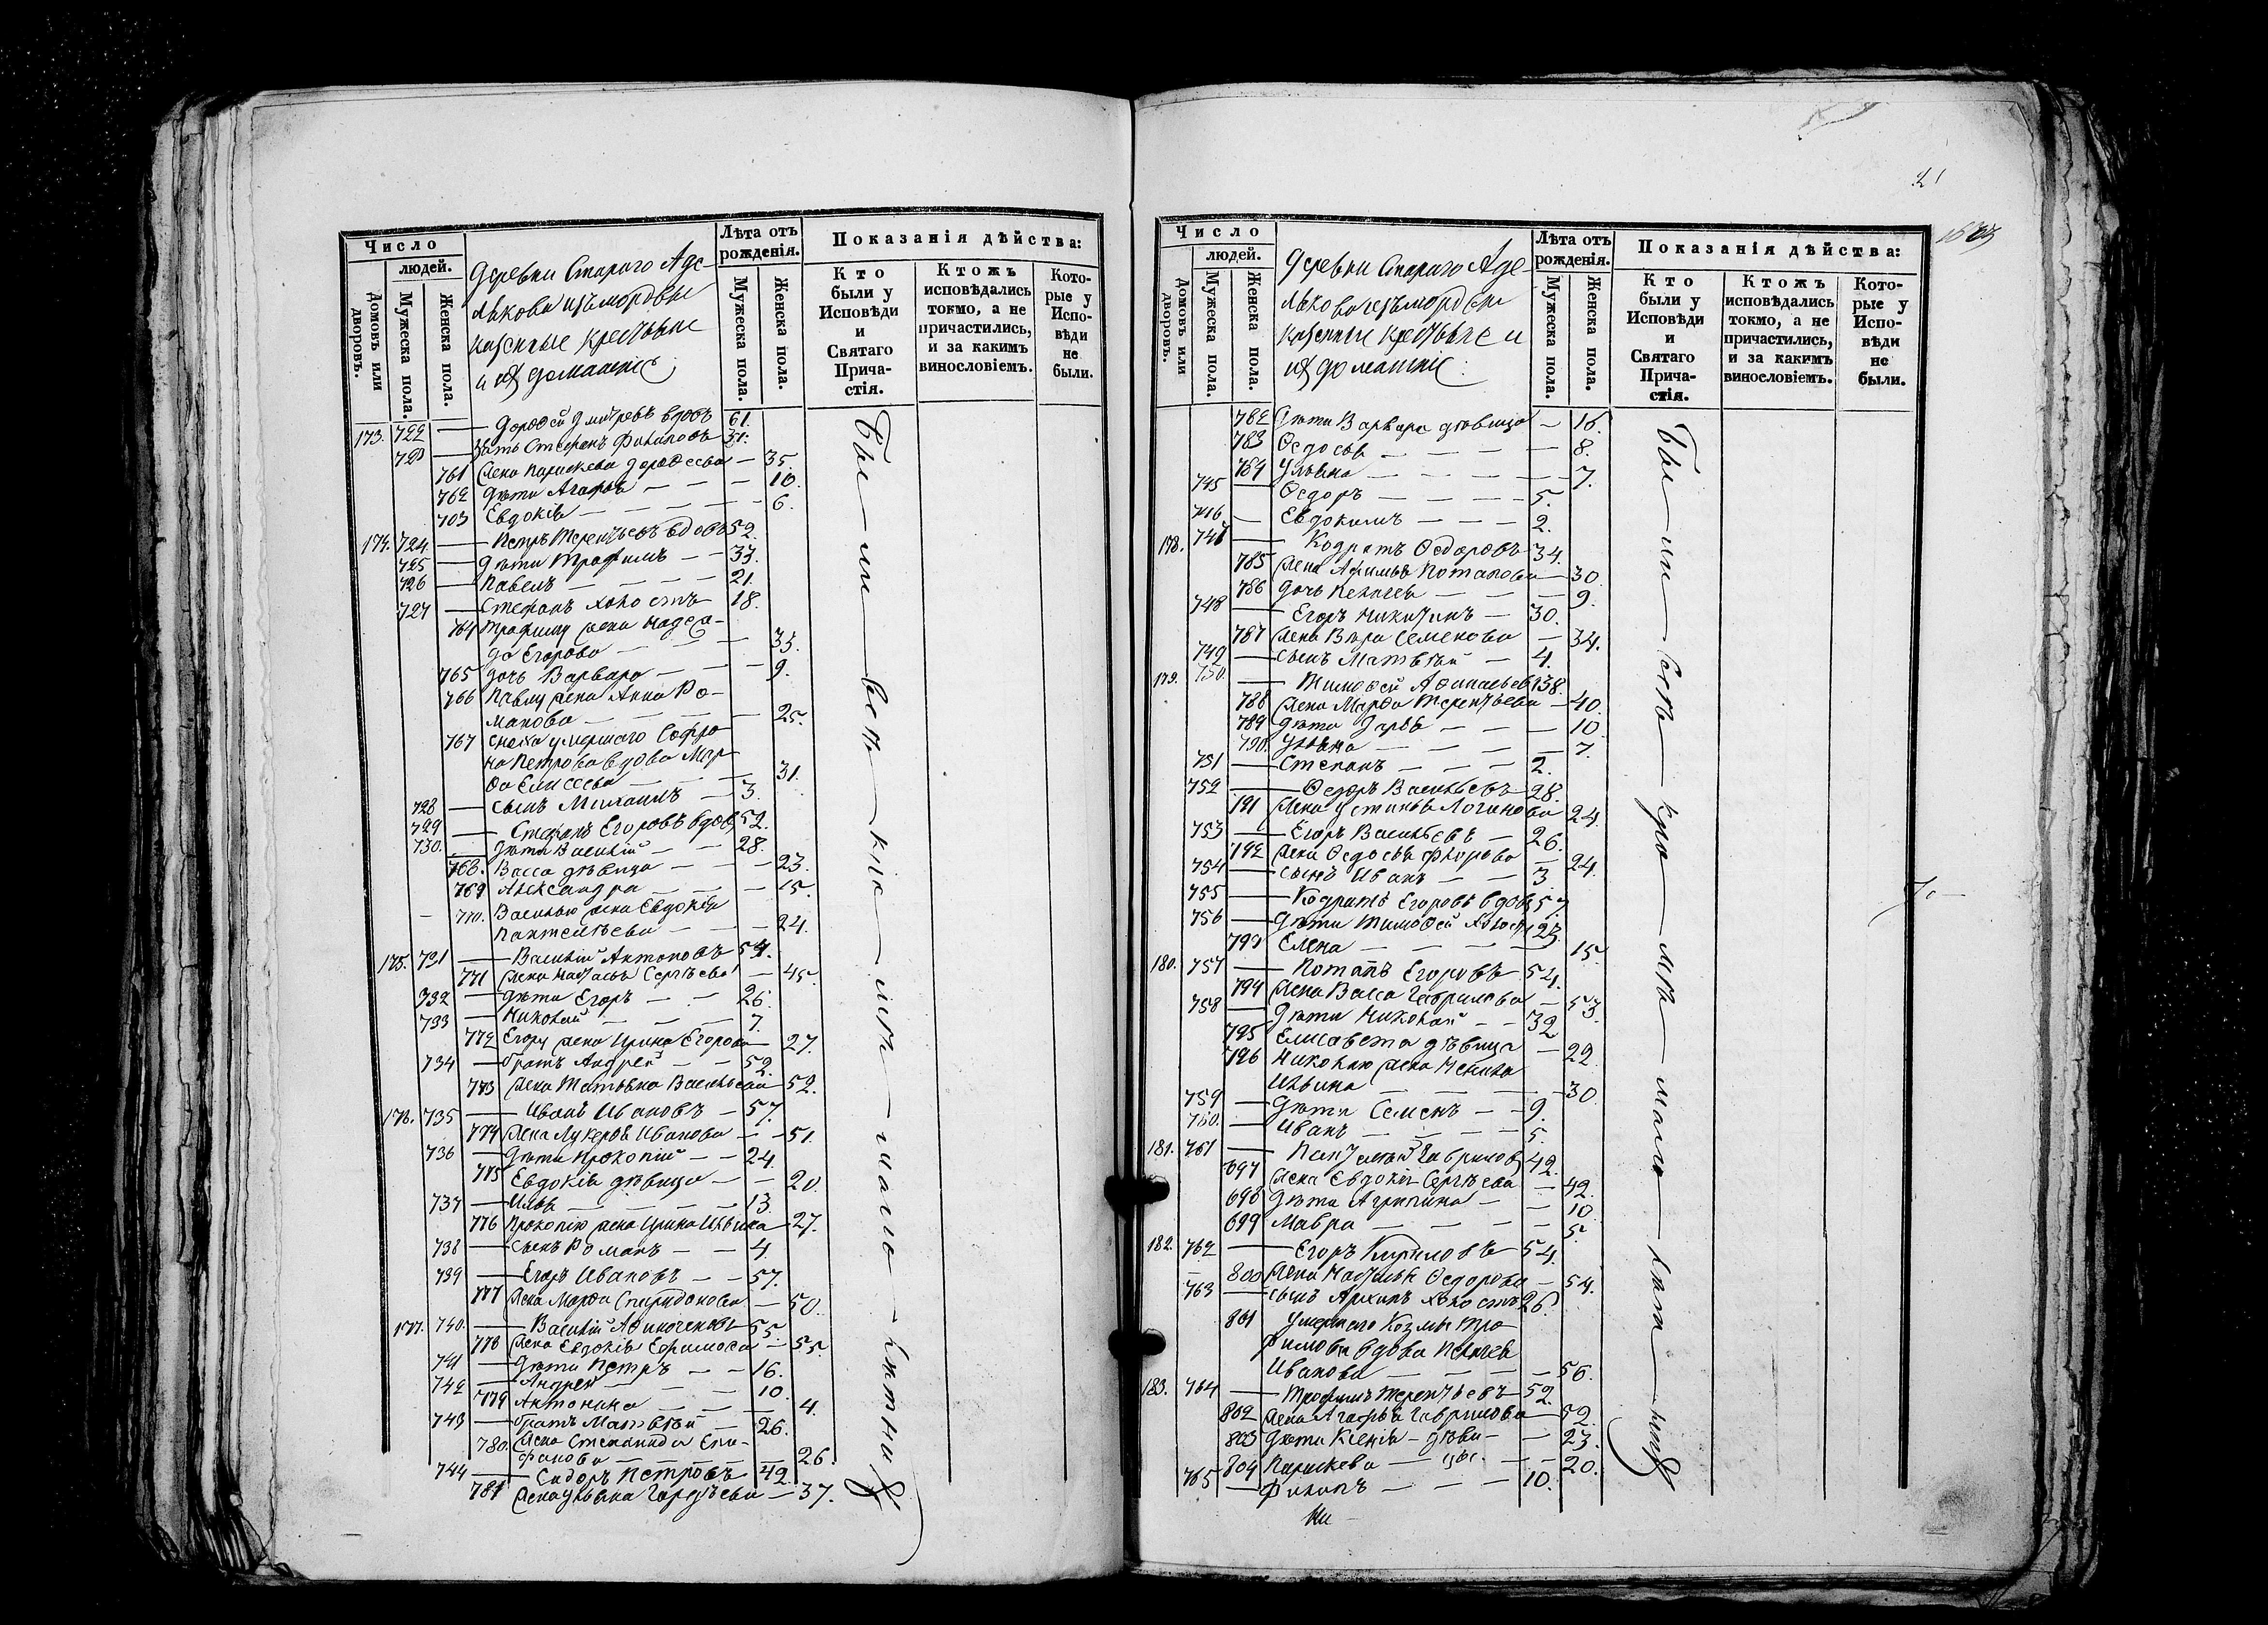 Число
людей.
Домовъ или дворовъ.
Мужеска пола.
Женска пола.
Деревни Стараго Аде-
лякова изъ мордвы
казенные крестьяне
и их домашніе
Лѣта отъ рожденія.
Мужеска пола.
Женска пола.
Показанія дѣйства:
Кто были у Исповѣди и Святаго Прича-стія.
Ктожъ исповѣдались токмо, а не причастились, и за какимъ винословіемъ.
Кото-рые у Испо-вѣди не были.
173. 722 — Дороѳей Дмитревъ вдовъ 61.
723 — Зять Стефанъ Филиповъ 31.
761 Жена Параскева Дороѳеева — 35.
762 Дѣти Агафья — — — 10.
763 Евдокія — — — — 6.
174. 724 — Петръ Терентьевъ вдовъ 52.
725 — Дѣти Трофимъ — — 33.
726 — Павелъ — — — 21.
727 — Стефанъ холостъ 18.
764 Трофиму жена Надеж-
да Егорова — — — 33.
765 Дочь Варвара — — — 9.
766 Павлу жена Анна Ро-
манова — — — — 25.
767 Сноха умершаго Софро-
на Петрова вдова Мар-
ѳа Елисеева — — — 31.
728 — Сынъ Михаилъ — 3.
729 — Стефанъ Егоровъ вдовъ 52.
730. — Дѣти Василій — — 28.
768. Васса дѣвица — — — 23.
769 Александра — — — 15.
770. Василью жена Евдокія
Пантелѣева — — — 24.
175. 731 — Василій Антоновъ 54.
771 Жена Настасья Сергѣева — 45.
732 — Дѣти Егоръ — — 26.
733 — Николай — — — 7.
772 Егору жена Ирина Егорова — 27.
734 — братъ Андрей — — 52.
773 Жена Татьяна Васильева 52.
176. 735 — Иванъ Ивановъ — 57.
774 Жена Лукерья Иванова — — 51.
736 — Дѣти Прокопій — — 24.
775 Евдокія дѣвица — — 20.
737 — Илья — — — — 13.
776 Прокопію жена Ирина Ильина — 27.
738 — Сынъ Романъ — — 4.
739 — Егоръ Ивановъ — — 57.
777 Жена Марѳа Спиридонова — 50.
177. 740. — Василій 55.
778 Жена Евдокія Ефимова — 55.
741 — Дѣти Петръ — — 16.
742 — Андрей — — — 10.
779 Антонина — — — — 4.
743 — братъ Матвѣй — 26.
780. Жена Степанида Епи-
фанова — — — — — 26.
744 — Сидоръ Петровъ 42.
781 Жена Ульяна — 37.
Бы — ли — всѣ
21
Число
людей.
Домовъ или дворовъ.
Мужеска пола.
Женска пола.
Деревни Стараго Аде-
лякова изъ мордвы
казенные крестьяне и
их домашніе.
Лѣта отъ рожденія.
Мужеска пола.
Женска пола.
Показанія дѣйства:
Кто были у Исповѣди и Святаго Прича-стія.
Ктожъ исповѣдались токмо, а не причастились, и за какимъ винословіемъ.
Кото-рые у Испо-вѣди не были.
782 Дѣти Варвара дѣвица — 16.
783 Ѳедосья — — — — 8.
784 Ульяна — — — — 7.
745 — Ѳедоръ — — — — 5.
746 — Евдокимъ — — — 2.
178. 747 — Кодратъ Ѳедоровъ 34.
785 Жена Афимья Потапова — 30.
786 Дочь Пелагея — — — 9.
748 — Егоръ Никитинъ — 30.
787 Жена Вѣра Семенова — 34.
749 — Сынъ Матвѣй — 4.
179. 750. — Тимоѳей 38.
788 Жена Марѳа Терентьева — 40.
789 Дѣти Дарья — — — 10.
790. Ульяна — — — — 7.
751 — Степанъ — — — 2.
752 — Ѳедоръ Васильевъ — 28.
791 Жена Устинья Логинова 24.
753 — Егоръ Васильевъ — 26.
792 Жена Ѳедосья Флорова — 24.
754 — Сынъ Иванъ — — 3.
755 — Кодратъ Егоровъ вдовъ 57.
756 — Дѣти Тимоѳей холостъ 23.
793 Елена — — — — 15.
180. 757 — Потапъ Егоровъ — 54.
794 Жена Васса Гаврилова — 53.
758 — Дѣти Николай — — 32.
795 Елисавета дѣвица — 22.
796 Николаю жена
Ильина — — — — 30.
759 — Дѣти Семенъ — — 9.
760. — Иванъ — — — — 5.
181. 761 — Пантелѣй Гавриловъ 42.
697 Жена Евдокія Сергѣева — 42.
698 Дѣти Агрипина — — 10.
699 Мавра — — — — 5.
182. 762 — Егоръ Кириловъ — 54.
800 Жена Настасья Ѳедорова — 54.
763 — Сынъ Архипъ холостъ 26.
801 Умершаго Козмы Тро-
фимова вдова Пелагея
Иванова — — — — 56.
183. 764 — Трофимъ Терентьевъ 52.
802 Жена Агафья Гаврилова — 52.
803 Дѣти Ксенія — дѣви — — 23.
804 Параскева — — — 20.
765 — Филипъ — — — 10.
Бы — ли — всѣ — кро — мѣ — мало — лѣт